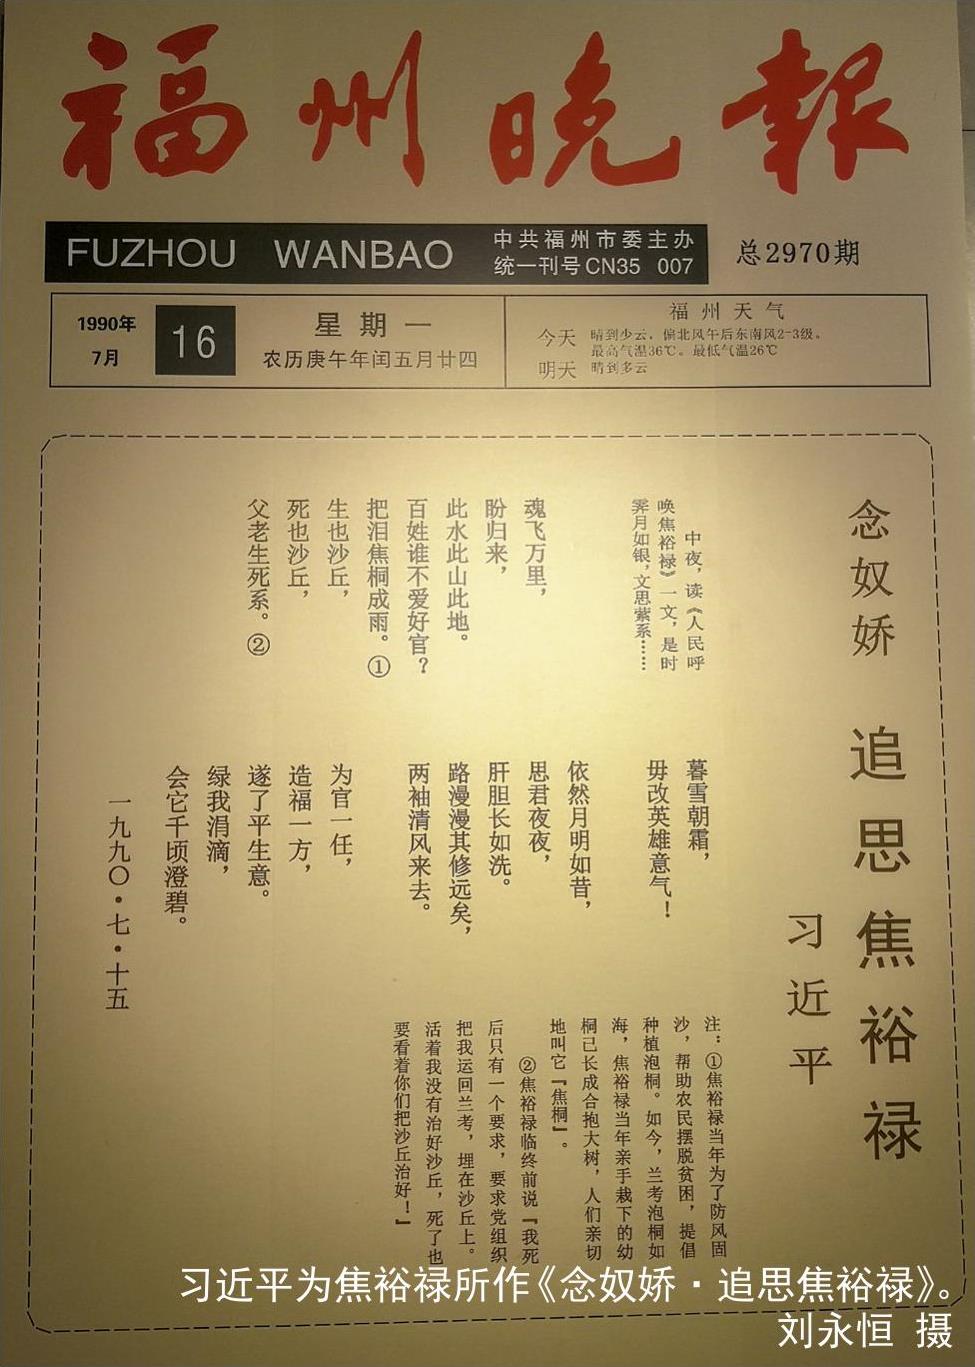 福州晚報
FUZHOU WANBAO
中共福州市委主办
统一刊号CN35 007
总2970期
1990年
7月
16
星期一
农历庚午年闰五月廿四
福州天气
今天 晴到少云，偏北风午后东南风2-3级。
最高气温36℃。最低气温26℃
明天 晴到多云
念奴娇 追思焦裕禄
习近平
中夜，读《人民呼
唤焦裕禄》一文，是时
霁月如银，文思萦系……
魂飞万里，
盼归来，
此水此山此地。
百姓谁不爱好官？
把泪焦桐成雨。①
生也沙丘，
死也沙丘，
父老生死系。②
暮雪朝霜，
毋改英雄意气！
依然月明如昔，
思君夜夜，
肝胆长如洗。
路漫漫其修远矣，
两袖清风来去。
为官一任，
造福一方，
遂了平生意。
绿我涓滴，
会它千顷澄碧。
一九九〇·七·十五
注：①焦裕禄当年为了防风固
沙，帮助农民摆脱贫困，提倡
种植泡桐。如今，兰考泡桐如
海，焦裕禄当年亲手栽下的幼
桐已长成合抱大树，人们亲切
地叫它『焦桐』。
②焦裕禄临终前说『我死
后只有一个要求，要求党组织
把我运回兰考，埋在沙丘上。
活着我没有治好沙丘，死了也
要看着你们把沙丘治好！』
习近平为焦裕禄所作《念奴娇·追思焦裕禄》。
刘永恒 摄